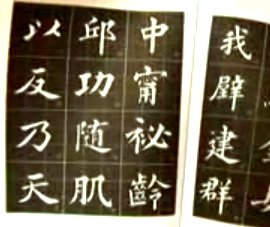 中甯祕齡
邱功随肌
以反乃天
我辟建群